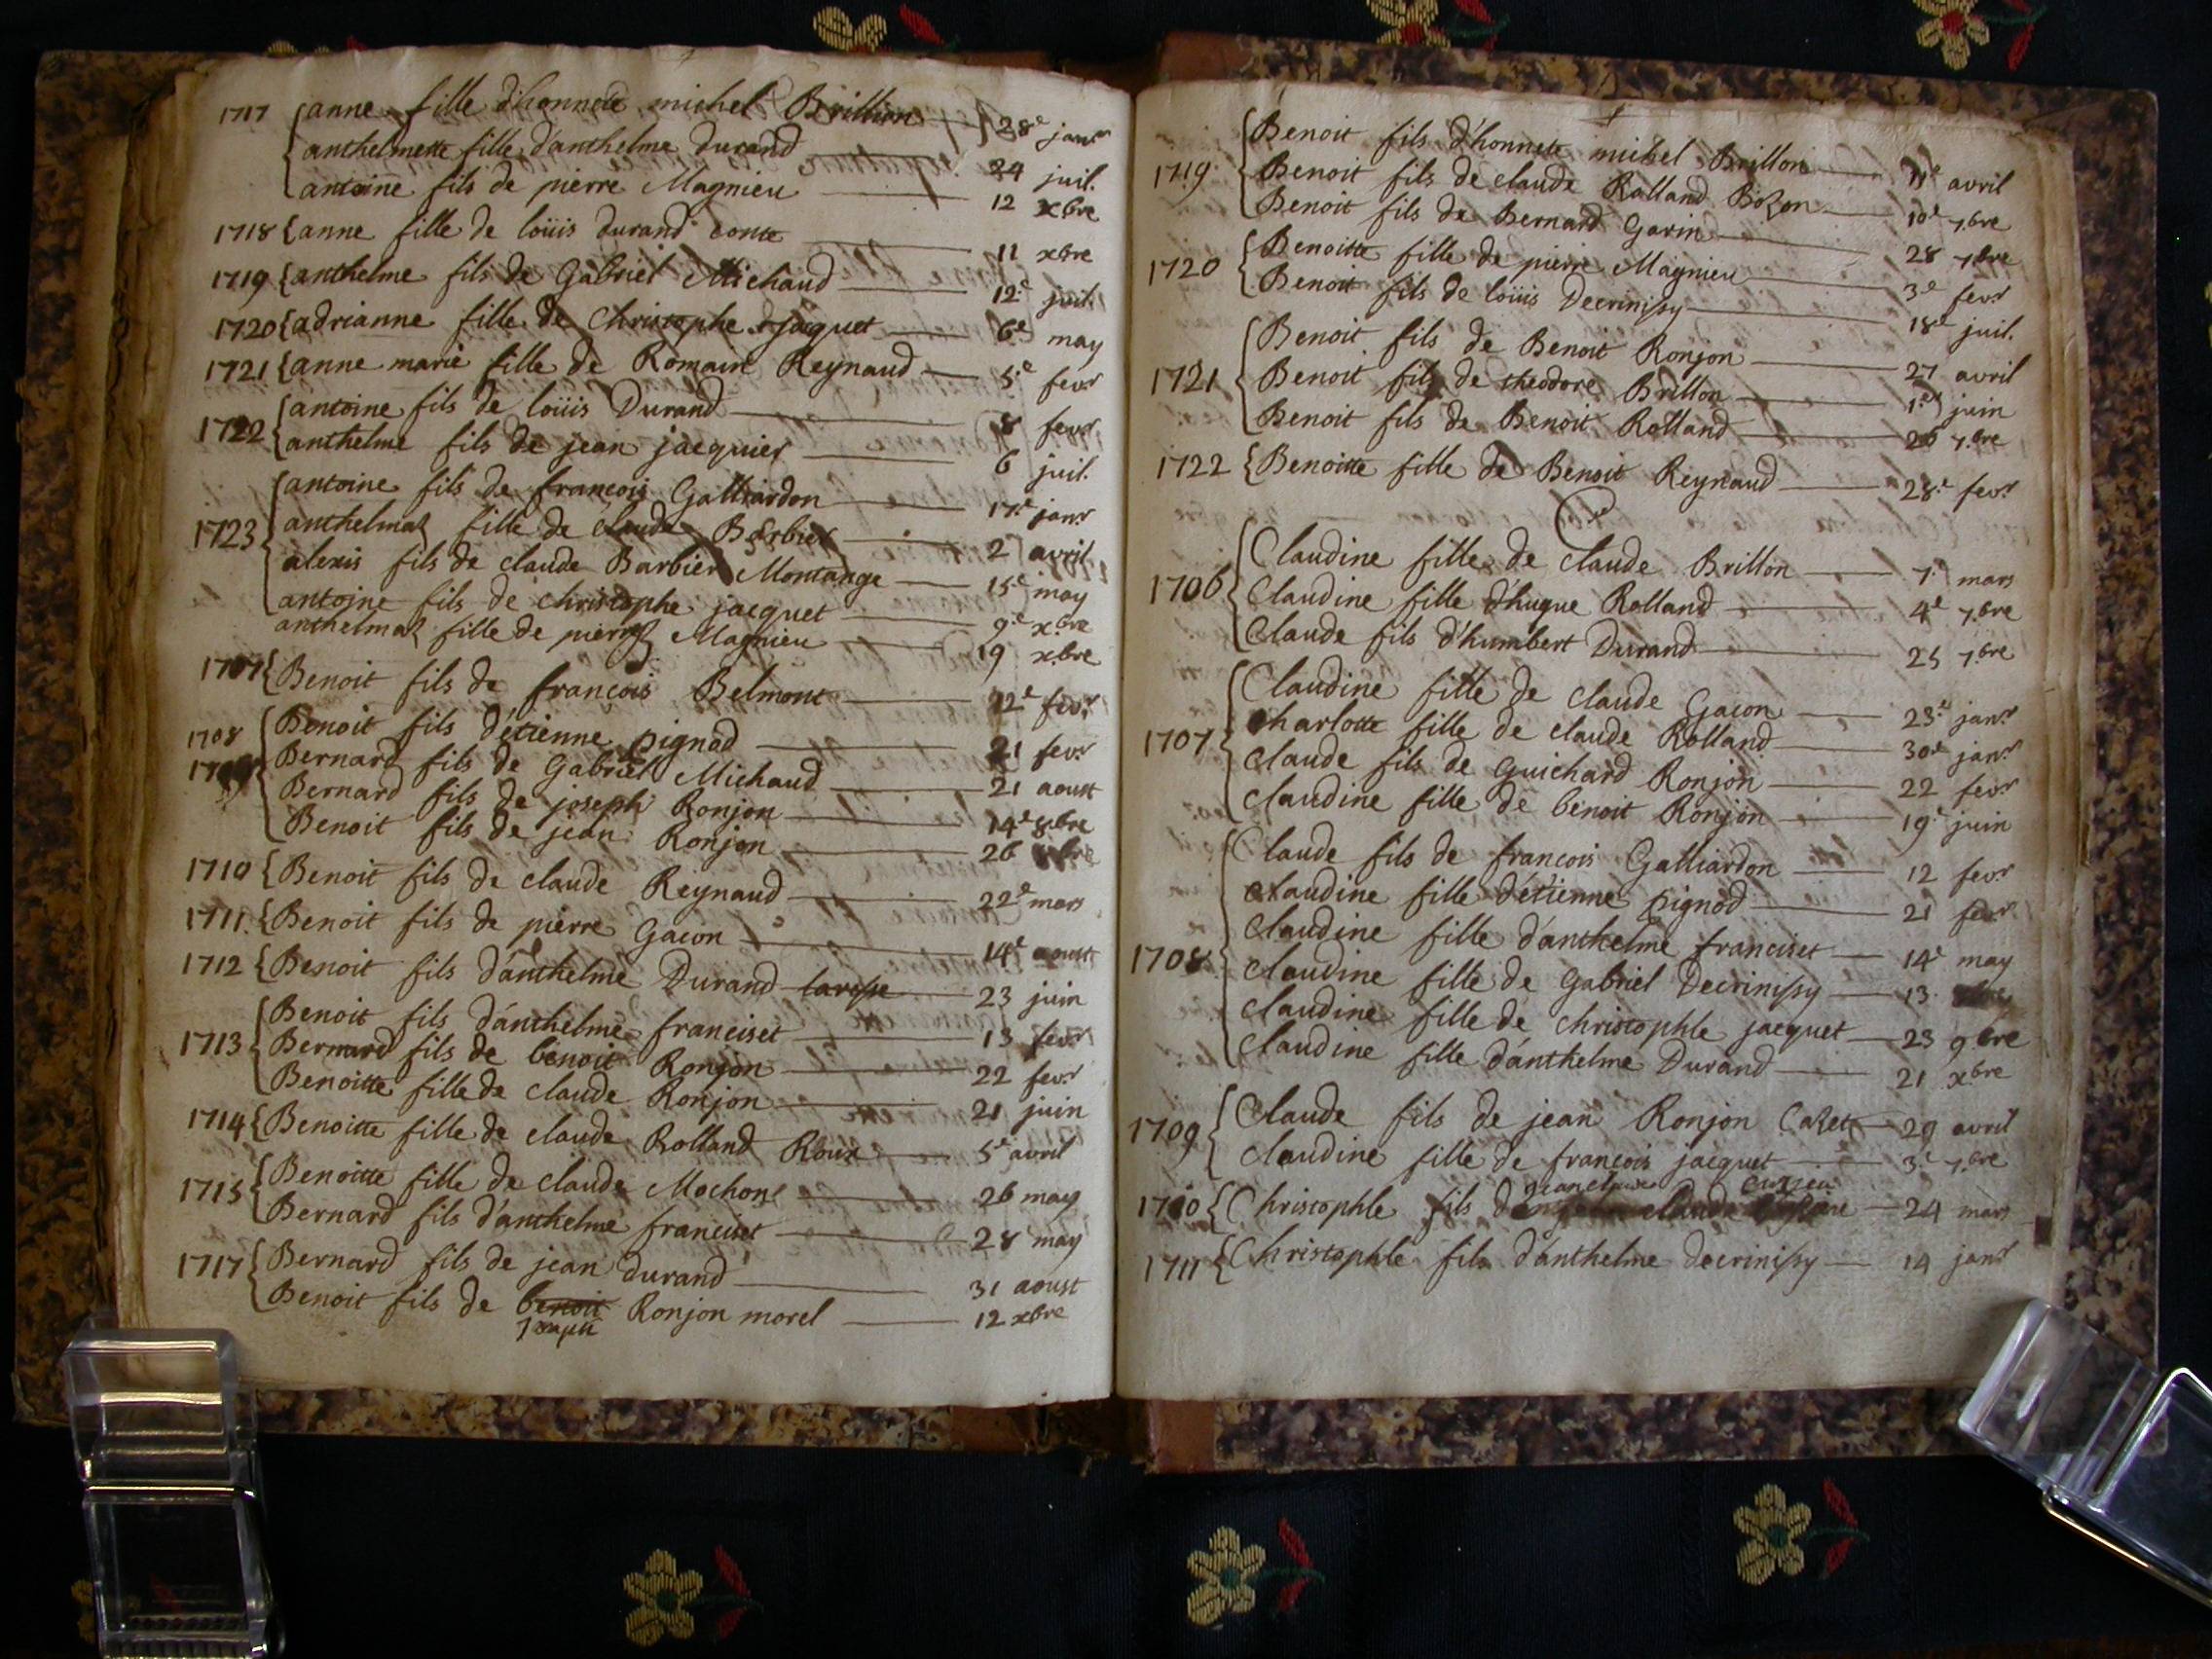 1717 { anne fille d'honnete michel Brillion 28e janr
anthelmette fille d'anthelme Durand 24 juil.
antoine fils de pierre Magnieu 12 xbre
1718 { anne fille de loüis Durand conte 11 xbre
1719 { anthelme fils de Gabriel Michaud 12e juil.
1720 { adrianne fille de Christophe jacquet 6e may
1721 { anne marie fille de Romain Reynaud 5e fevr
1722 { antoine fils de loüis Durand 8 fevr
anthelme fils de jean jacquier 6 juil.
1723 { antoine fils de francois Galliardon 17e janr
anthelmaz fille de claude Barbier 2 avril
alexis fils de claude Barbier Montange 15e may
antoine fils de christophe jacquet 9e xbre
anthelmaz fille de pierre Magnieu 19 xbre
1707 { Benoit fils de francois Belmont 12e fevr
1708 { Benoit fils d'étienne pignod 21 fevr
Bernard fils de Gabriel Michaud 21 aoust
Bernard fils de joseph Ronjon 14e 8bre
Benoit fils de jean Ronjon 26
1710 { Benoit fils de claude Reynaud 22e mars
1711. { Benoit fils de pierre Gacon 14e aoust
1712 { Benoit fils d'anthelme Durand 23 juin
1713 { Benoit fils d'anthelme franciset 13 fevr
Bernard fils de benoit Ronjon 22 fevr
Benoitte fille de claude Ronjon 21 juin
1714 { Benoitte fille de claude Rolland Roux 5e avril
1715 { Benoitte fille de claude Mochon 26 may
Bernard fils d'anthelme franciset 28 may
1717 { Bernard fils de jean Durand 31 aoust
Benoit fils de benoit Ronjon morel 12 xbre
1719 { Benoit fils d'honnete michel Brillon 11e avril
Benoit fils de claude Rolland Bozon 10e 7bre
Benoit fils de Bernard Garin 28 7bre
1720 { Benoitte fille de pierre Magnieu 3e fevr
Benoit fils de loüis Decrinissy 18e juil.
1721 { Benoit fils de Benoit Ronjon 27 avril
Benoit fils de theodore Brillon 1er juin
Benoit fils de Benoit Rolland 26 7bre
1722 { Benoitte fille de Benoit Reynaud 28e fevr
C
1706 { Claudine fille de claude Brillon 7e mars
Claudine fille d'hugue Rolland 4e 7bre
Claude fils d'humbert Durand 25 7bre
1707 { Claudine fille de claude Gacon 23e janr
Charlotte fille de claude Rolland 30e janr
Claude fils de Guichard Ronjon 22 fevr
Claudine fille de benoit Ronjon 19e juin
1708 { Claude fils de francois Galliardon 12 fevr
claudine fille d'étienne pignod 21 fevr
claudine fille d'anthelme franciset 14e may
claudine fille de Gabriel Decrinissy 13
claudine fille de christophle jacquet 23 9bre
claudine fille d'anthelme Durand 21 xbre
1709 { Claude fils de jean Ronjon Cazet 29 avril
claudine fille de francois jacquet 3e 7bre
jean claude
1710 { Christophle fils claude 24 mars
1711 { Christophle fils d'anthelme decrinissy 14 janr